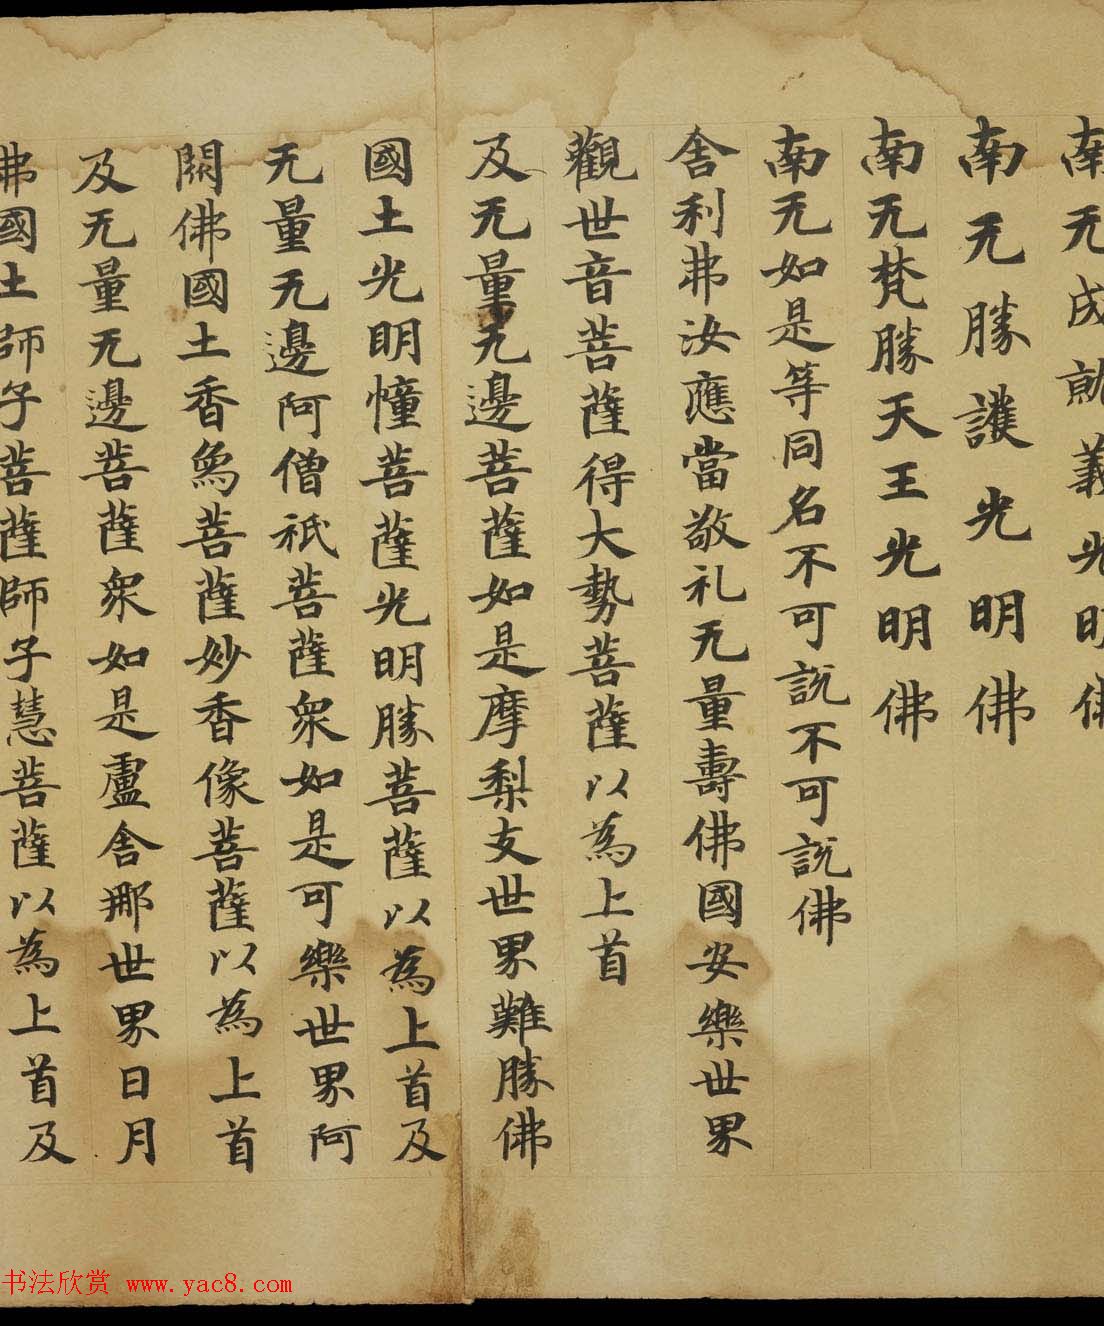 南无成就義光明佛
南无勝護光明佛
南无梵勝天王光明佛
南无如是等同名不可說不可說佛
舍利弗汝應當敬礼无量壽佛國安樂世界
觀世音菩薩得大勢菩薩以為上首
及无量无邊菩薩如是摩梨支世界難勝佛
國土光明幢菩薩光明勝菩薩以為上首及
无量无邊阿僧祇菩薩衆如是可樂世界阿
閦佛國土香象菩薩妙香像菩薩以為上首
及无量无邊菩薩衆如是盧舍那世界日月
佛國土師子菩薩師子慧菩薩以為上首及
书法欣赏 www.yac8.com